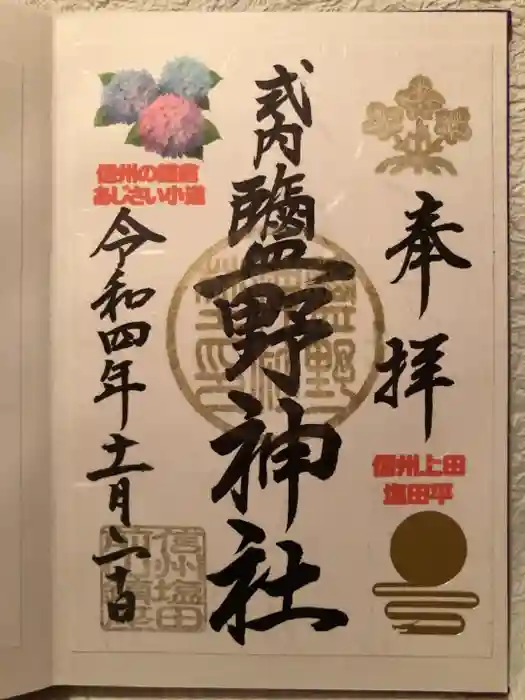 奉拝
信州上田
塩田平
式内鹽野神社
信州の鎌倉
あじさい小道
令和四年十一月二十日
信州塩田